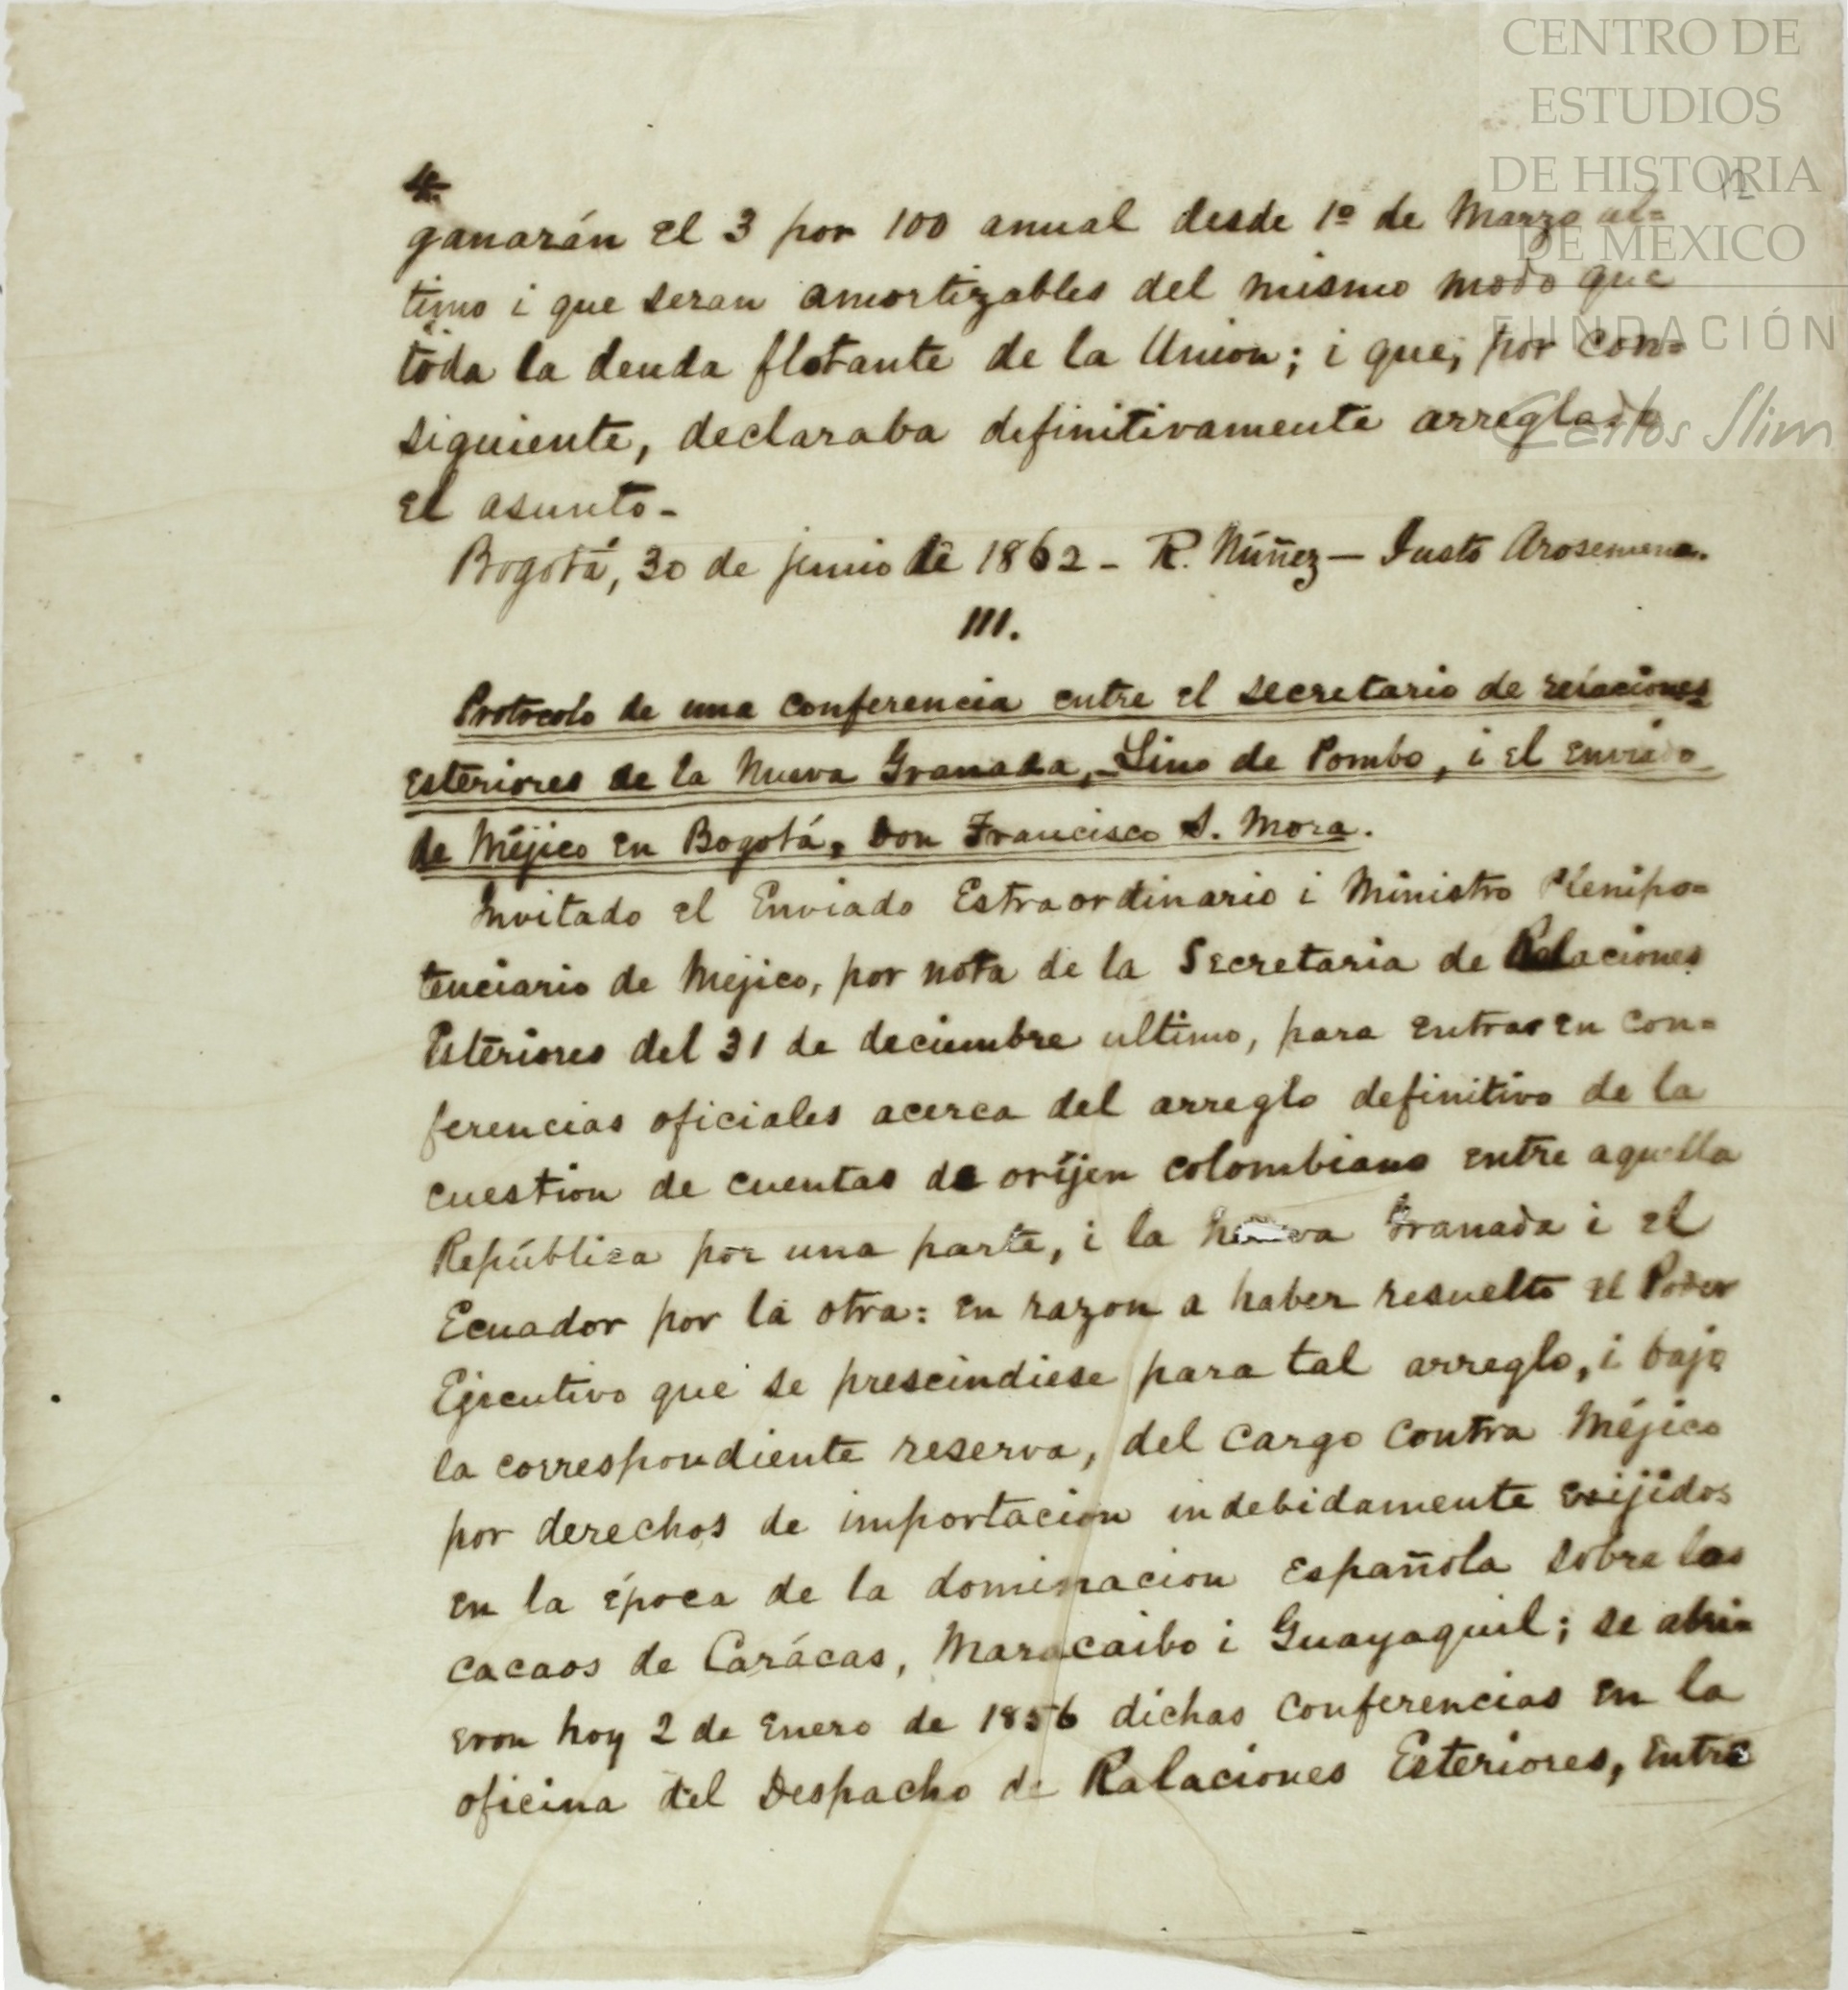 CENTRO DE
ESTUDIOS
DE HISTORIA
DE MEXICO
FUNDACIÓN
Carlos Slim
12
4.
ganarán el 3 por 100 anual desde 1º de Marzo ul=
timo i que seran amortizables del mismo modo que
toda la deuda flotante de la Union; i que, por con=
siguiente, declaraba definitivamente arreglado
el asunto-
Bogotá, 30 de junio de 1862- R. Núñez- Justo Arosemena.
III.
Protocolo de una conferencia entre el secretario de relaciones
esteriores de la Nueva Granada, Lino de Pombo, i el enviado
de Méjico en Bogotá, Don Francisco S. Mora.
Invitado el Enviado Estraordinario i Ministro Plenipo=
tenciario de Mejico, por nota de la Secretaria de Relaciones
Esteriores del 31 de deciembre ultimo, para entrar en con=
ferencias oficiales acerca del arreglo definitivo de la
cuestion de cuentas de oríjen colombiano entre aquella
República por una parte, i la Nueva Granada i el
Ecuador por la otra: en razon a haber resuelto el Poder
Ejecutivo que se prescindiese para tal arreglo, i bajo
la correspondiente reserva, del cargo contra Méjico
por derechos de importacion indebidamente exijidos
en la época de la dominacion Española sobre los
cacaos de Carácas, Maracaibo i Guayaquil; se abri=
eron hoy 2 de Enero de 1856 dichas conferencias en la
oficina del Despacho de Ralaciones Esteriores, entre